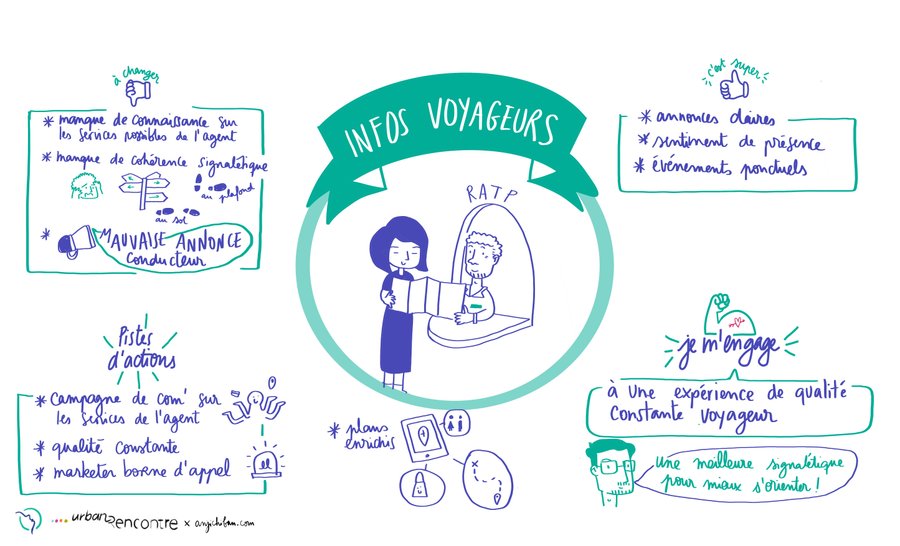 INFOS VOYAGEURS
RATP
à changer
* manque de connaissance sur
les services possibles de l'agent
* manque de cohérence signalétique
au plafond
au sol
* MAUVAISE ANNONCE
conducteur
c'est super
* annonces claires
* sentiment de présence
* événements ponctuels
Pistes
d'actions
* campagne de com' sur
les services de l'agent
* qualité constante
* marketer borne d'appel
* plans
enrichis
je m'engage
à une expérience de qualité
constante voyageur
une meilleure signalétique
pour mieux s'orienter !
urban Rencontre x